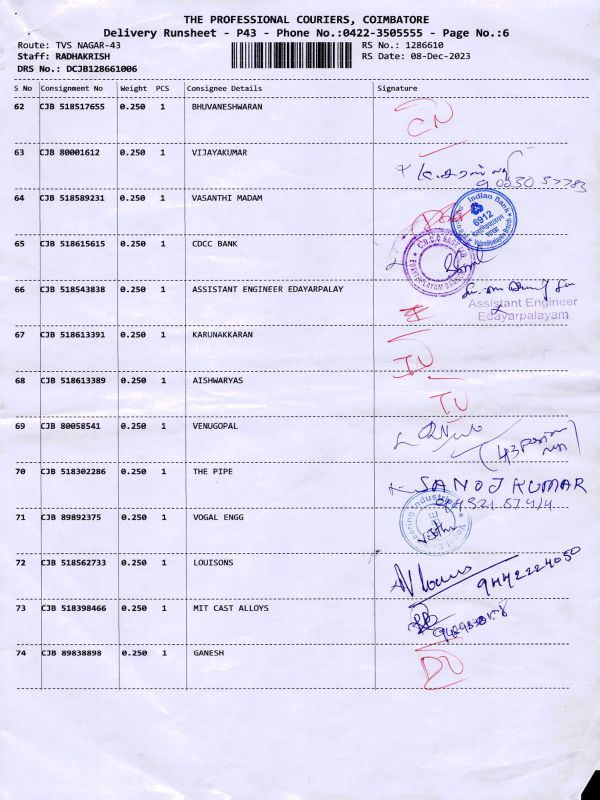 THE PROFESSIONAL COURIERS, COIMBATORE
Delivery Runsheet - P43 - Phone No.:0422-3505555 - Page No.:6
Route: TVS NAGAR-43 RS No.: 1286610
Staff: RADHAKRISH RS Date: 08-Dec-2023
DRS No.: DCJB128661006
S No Consignment No Weight PCS Consignee Details Signature
62 CJB 518517655 0.250 1 BHUVANESHWARAN
CN
63 CJB 80001612 0.250 1 VIJAYAKUMAR
64 CJB 518589231 0.250 1 VASANTHI MADAM
Indian Bank
6912
65 CJB 518615615 0.250 1 CDCC BANK
66 CJB 518543838 0.250 1 ASSISTANT ENGINEER EDAYARPALAY
Assistant Engineer
Edayarpalayam
67 CJB 518613391 0.250 1 KARUNAKKARAN
68 CJB 518613389 0.250 1 AISHWARYAS
69 CJB 80058541 0.250 1 VENUGOPAL
70 CJB 518302286 0.250 1 THE PIPE
SANOJ KUMAR
71 CJB 89892375 0.250 1 VOGAL ENGG
72 CJB 518562733 0.250 1 LOUISONS
9442224050
73 CJB 518398466 0.250 1 MIT CAST ALLOYS
74 CJB 89838898 0.250 1 GANESH